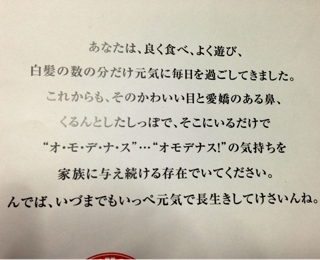 あなたは、良く食べ、よく遊び、
白髪の数の分だけ元気に毎日を過ごしてきました。
これからも、そのかわいい目と愛嬌のある鼻、
くるんとしたしっぽで、そこにいるだけで
“オ・モ・デ・ナ・ス”…“オモデナス!”の気持ちを
家族に与え続ける存在でいてください。
んでば、いづまでもいっぺ元気で長生きしてけさいんね。